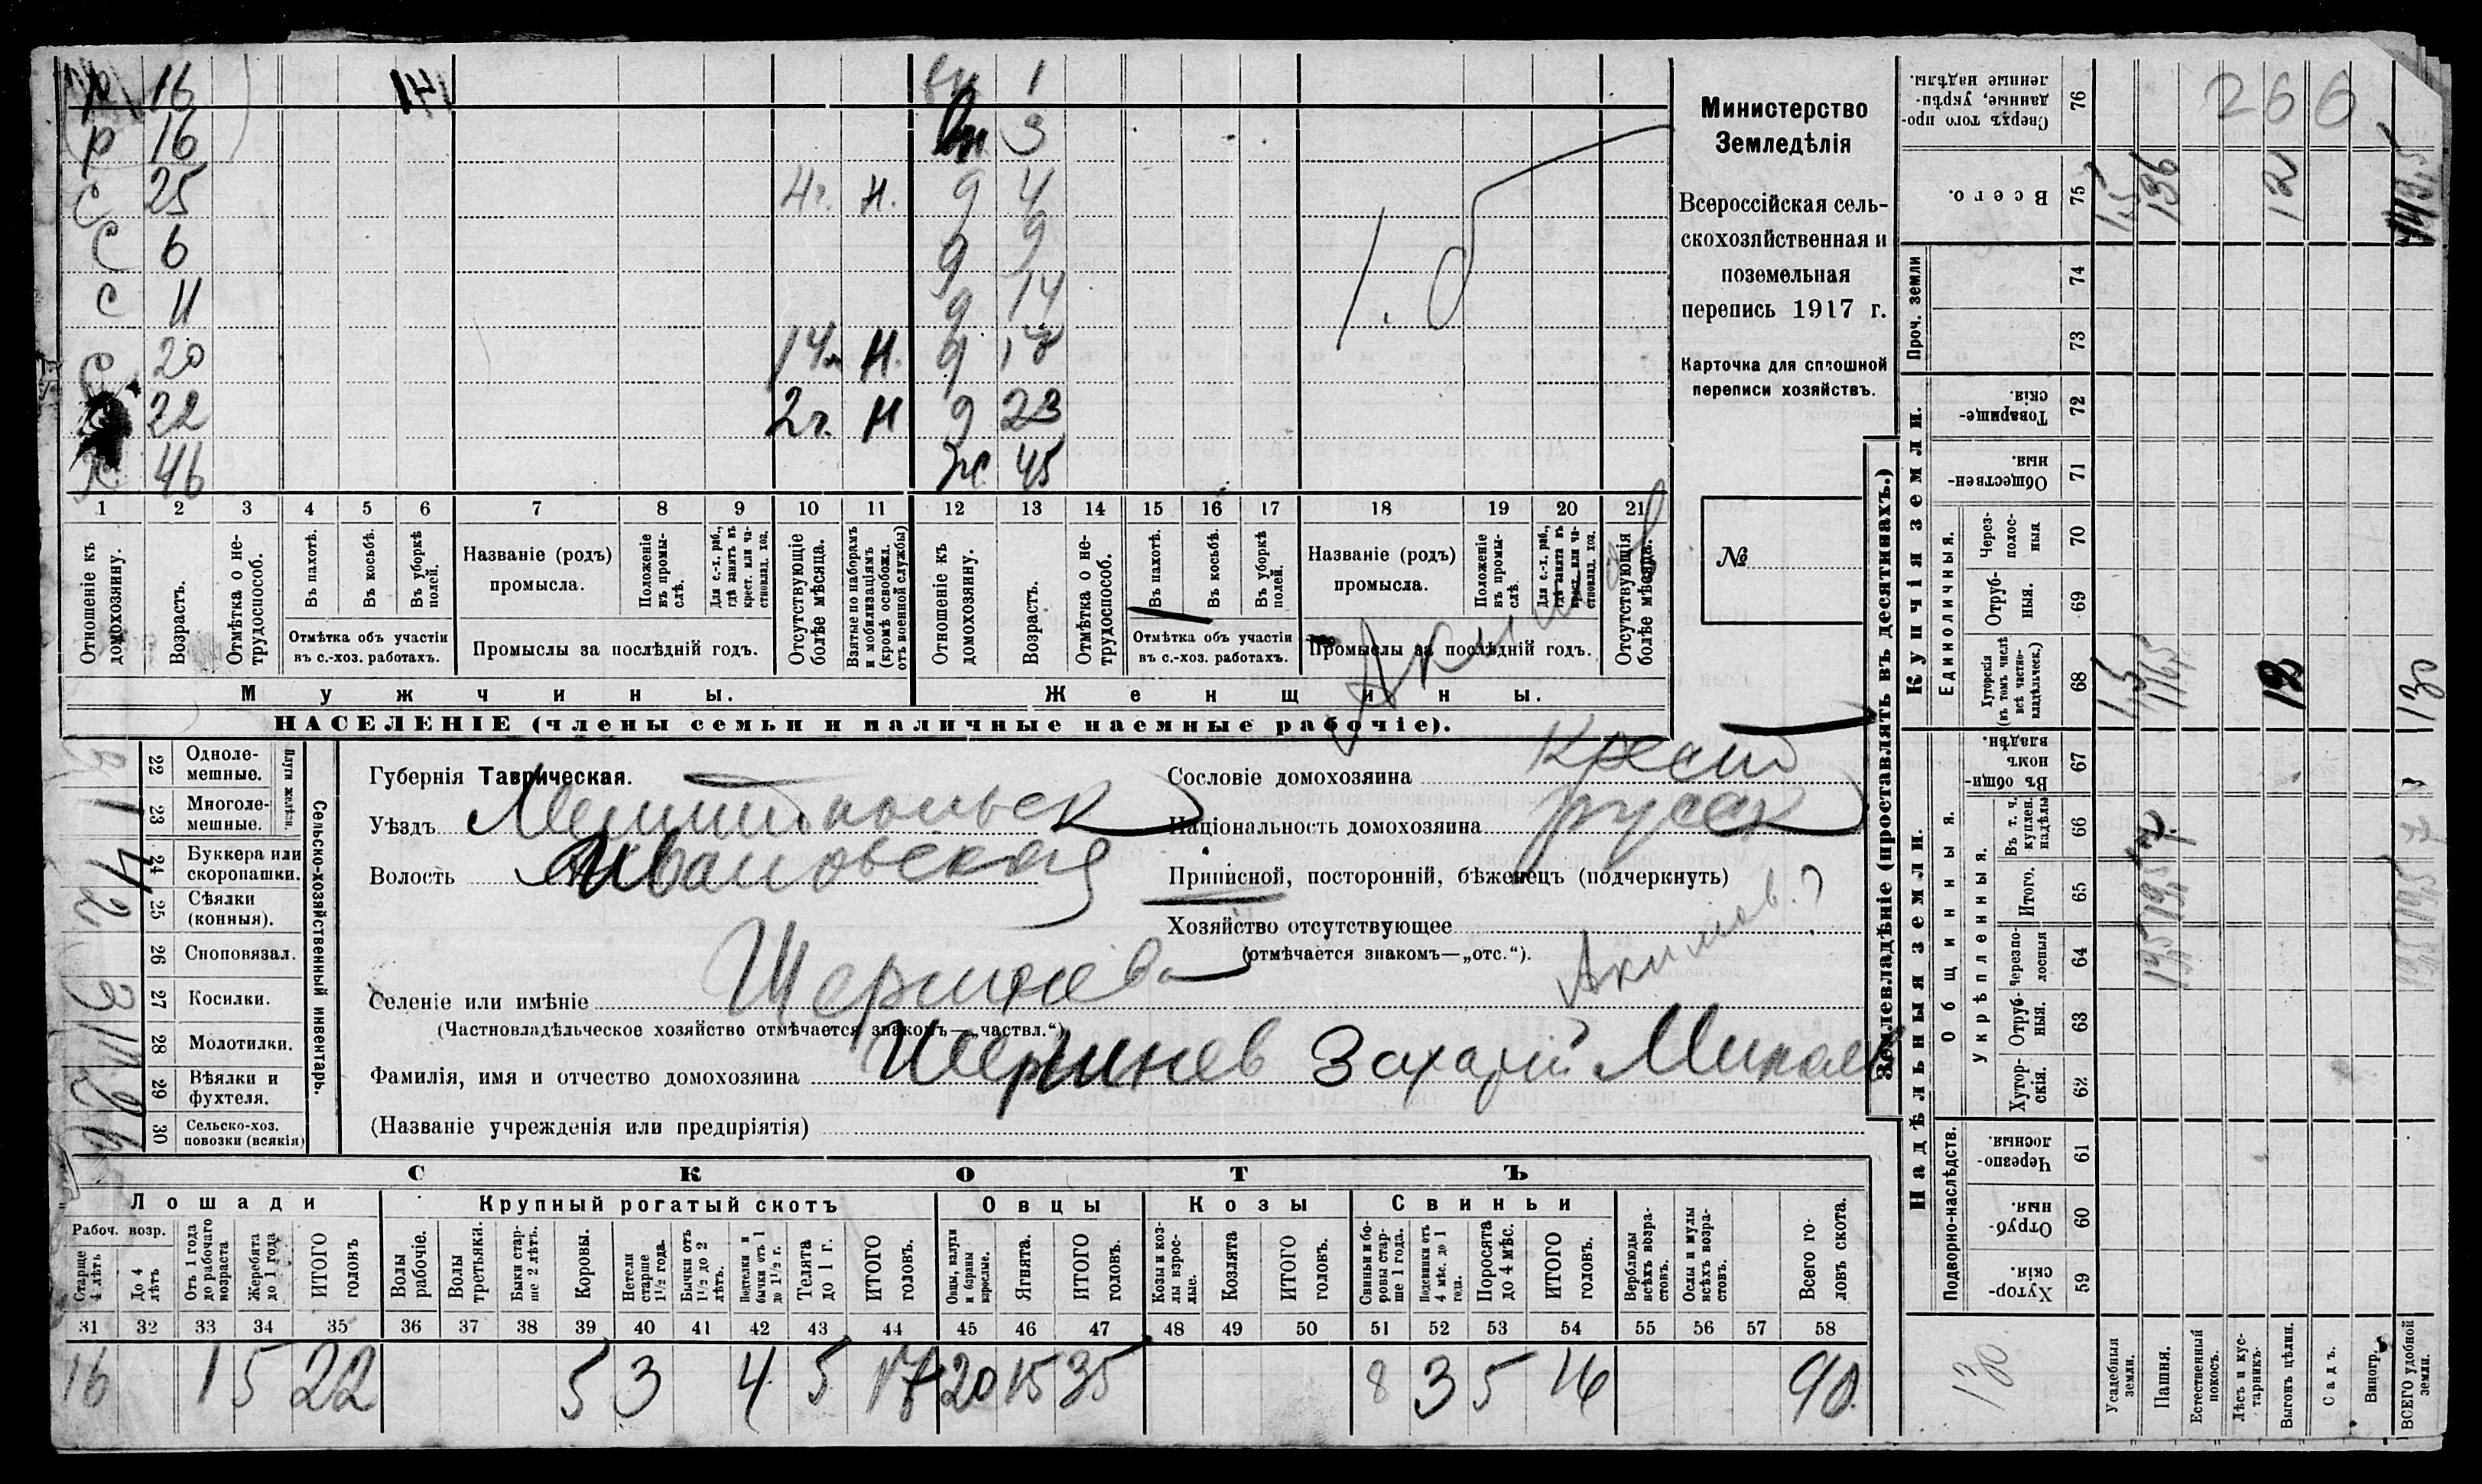 р 16 вн 1
р 16 вн 3
с 25 4г. н. д 4
с 6 д 9
с 11 д 14
с 20 14м н. д 17
22 2г. н д 23
х 46 ж 45
1 2 3 4 5 6 7 8 9 10 11 12 13 14 15 16 17 18 19 20 21
Отношеніе къ домохозяину.
Возрастъ.
Отмѣтка о нетрудоспособ.
Въ пахотѣ.
Въ косьбѣ.
Въ уборкѣ полей.
Отмѣтка объ участіи
въ с.-хоз. работахъ.
Названіе (родъ)
промысла.
Положеніе въ промыслѣ.
Для с.-х. раб., гдѣ занятъ въ крест. или частновлад. хоз.
Промыслы за послѣдній годъ.
Отсутствующіе болѣе мѣсяца.
Взятые по наборамъ и мобилизаціямъ (кромѣ освобожд. отъ военной службы)
Отношеніе къ домохозяину.
Возрастъ.
Отмѣтка о нетрудоспособ.
Въ пахотѣ.
Въ косьбѣ.
Въ уборкѣ полей.
Отмѣтка объ участіи
въ с.-хоз. работахъ.
Названіе (родъ)
промысла.
Положеніе въ промыслѣ.
Для с.-х. раб., гдѣ занята въ крест. или частновлад. хоз.
Промыслы за послѣдній годъ.
Отсутствующія болѣе мѣсяца.
Мужчины.
Женщины.
НАСЕЛЕНІЕ (члены семьи и наличные наемные рабочіе).
Министерство
Земледѣлія
Всероссійская сель-
скохозяйственная и
поземельная
перепись 1917 г.
Карточка для сплошной
переписи хозяйствъ.
№
Сельско-хозяйственный инвентарь.
Плуги желѣзн.
22 Одноле-
мешные.
23 Многоле-
мешные. 1
24 Буккера или
скоропашки. 4
25 Сѣялки
(конныя). 2
26 Сноповязал.
27 Косилки. 3
28 Молотилки.
29 Вѣялки и
фухтеля. 2
30 Сельско-хоз.
повозки (всякія)
Губернія Таврическая.
Уѣздъ Мелитопольск
Волость Ивановская
Селеніе или имѣніе
(Частновладѣльческое хозяйство отмѣчается знакомъ—„частвл.“)
Фамилія, имя и отчество домохозяина Шершнев Захарій
(Названіе учрежденія или предпріятія)
Сословіе домохозяина Крест
Національность домохозяина русск
Приписной, посторонній, бѣженецъ (подчеркнуть)
Хозяйство отсутствующее
(отмѣчается знакомъ—„отс.“).
Акимов.?
СКОТЪ
Лошади
Крупный рогатый скотъ
Овцы
Козы
Свиньи
Рабоч. возр.
Старше 4 лѣтъ
До 4 лѣтъ
Отъ 1 года до рабочаго возраста
Жеребята до 1 года
ИТОГО головъ
Волы рабочіе.
Волы третьяки.
Быки старше 2 лѣтъ.
Коровы.
Нетели старше 1½ года.
Бычки отъ 1½ до 2 лѣтъ.
Нетелки и бычки отъ 1 до 1½ г.
Телята до 1 г.
ИТОГО головъ.
Овцы, валухи и бараны взрослые.
Ягнята.
ИТОГО головъ.
Козы и козлы взрослые.
Козлята
ИТОГО головъ.
Свиньи и боровы старше 1 года.
Подсвинки отъ 4 мѣс. до 1 года.
Поросята до 4 мѣс.
ИТОГО головъ.
Верблюды всѣхъ возрастовъ.
Ослы и мулы всѣхъ возрастовъ.
Всего головъ скота.
31 32 33 34 35 36 37 38 39 40 41 42 43 44 45 46 47 48 49 50 51 52 53 54 55 56 57 58
16 1 5 22 5 3 4 5 17 20 15 35 8 3 5 16 90.
Землевладѣніе (проставлять въ десятинахъ.)
Сверхъ того проданные, укрѣпленные надѣлы. 76
266
Всего. 75 1,5 136 12
Купчія земли.
Проч. земли 74
73
Товарищескія. 72
Общественныя. 71
Единоличныя.
Черезполосныя 70
Отрубныя. 69
Хуторскія (въ томъ числѣ всѣ частновладѣльческ.) 68 1,5 116,5 12 130
Надѣльныя земли.
Общинныя.
Въ общинномъ владѣн. 67
Укрѣпленныя.
Въ т. ч. куплен. надѣлы 66
Итого. 65 19,5
Черезполосныя 64 19,5
Отрубныя. 63
Хуторскія. 62
Подворно-наслѣдств.
Черезполосныя. 61
Отрубныя. 60
Хуторскія. 59
130
Усадебныя земли.
Пашня.
Естественный покосъ.
Лѣсъ и кустарникъ.
Выгонъ цѣлин.
Садъ.
Виногр.
ВСЕГО удобной земли.